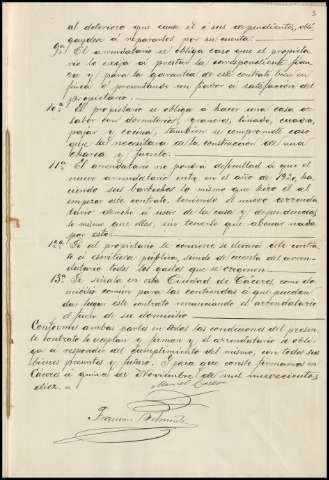 3
al deterioro que cause él ó sus dependientes, obli
gandose á repararlos por su cuenta.
9ª. El arrendatario se obliga caso que el propieta-
rio le exija á prestar la correspondiente fian
za y para la garantia de este contrato, bien en
finca ó presentando un fiador á satisfaccion del
propietario.
10ª. El propietario se obliga a hacer una casa de
labor con dormitorios, granero, tinado, cuadra,
pajar y cocina, tambien se compromete caso
que las necesitara de la construccion de una
charca y fuente.
11ª. El arrendatario no pondra dificultad á que el
nuevo arrendatario entre en el año de 1920, ha
ciendo sus barbechos lo mismo que hizo él al
empezar este contrato, teniendo el nuevo arrenda
tario derecho á usar de la casa y dependencias
lo mismo que ellos, sin tenerle que abonar nada
por esto.
12ª. Si al propietario le conviene se elevará este contra
to á escritura pública, siendo de cuenta del arren-
datario todos los gastos que se originen.
13ª. Se señala en esta Ciudad de Cáceres como do-
micilio comun para las contiendas á que puedan
dar lugar este contrato renunciando el arrendatario
el fuero de su domicilio
Conformes ambas partes en todas las condiciones del presen
te contrato lo aceptan y firman y el arrendatario se obli
ga á responder del cumplimiento del mismo, con todos sus
bienes presentes y futuros. Y para que conste firmamos en
Cáceres á quince de Noviembre de mil novecientos
diez.